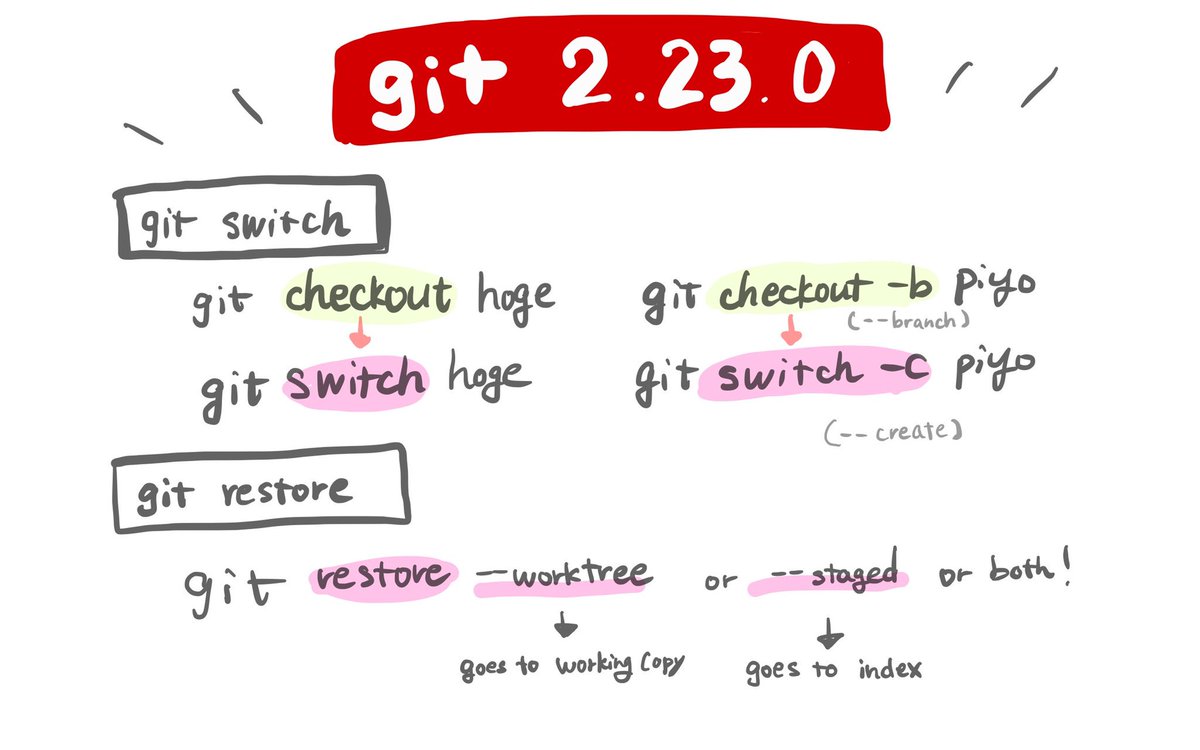 git 2.23.0
git switch
git checkout hoge
git switch hoge
git checkout -b piyo
(--branch)
git switch -c piyo
(--create)
git restore
git restore --worktree or --staged or both!
goes to working copy
goes to index